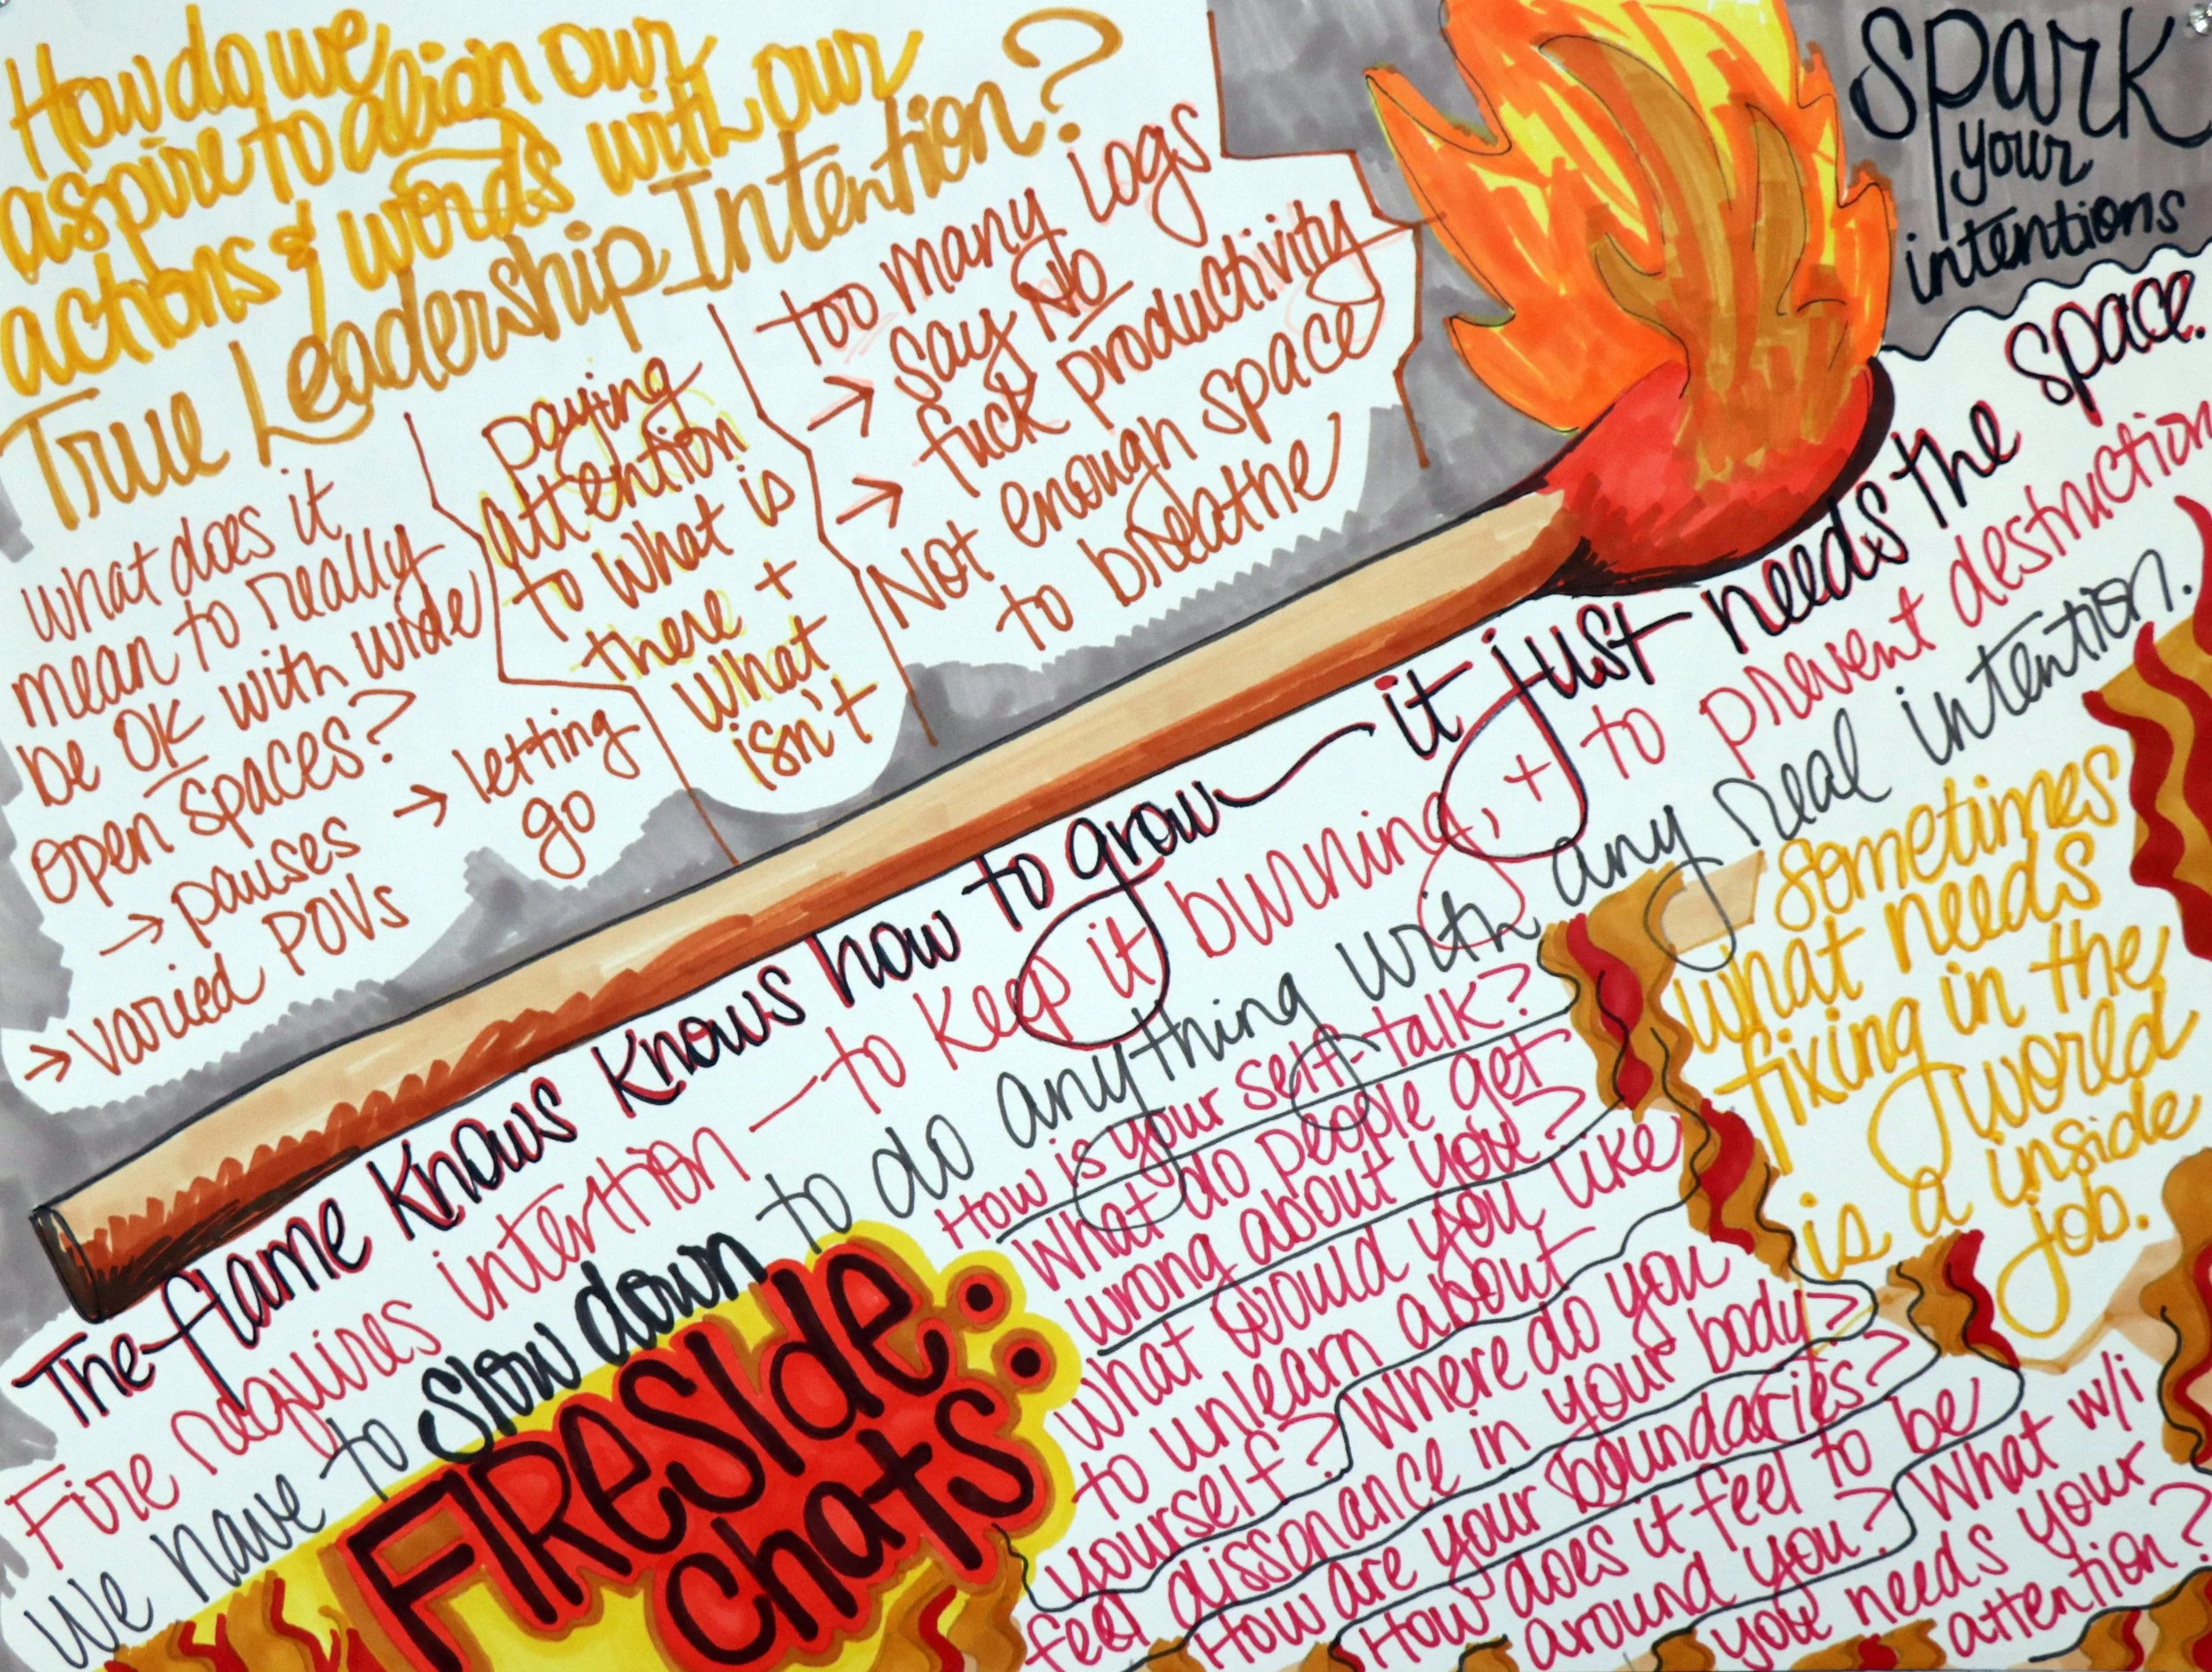 How do we
aspire to align our
actions & words with our
True Leadership Intention?
what does it
mean to really
be OK with wide
open spaces?
→ pauses
→ varied POVs
→ letting
go
paying
attention
to what is
there +
what
isn't
too many logs
→ say No
fuck productivity
→ Not enough space
to breathe
spark
your
intentions
The flame knows knows how to grow — it just needs the space.
Fire requires intention — to keep it burning, + to prevent destruction
We have to slow down to do anything with any real intention.
FIRESIDE
chats:
How is your self-talk?
What do people get
wrong about you?
What would you like
to unlearn about
yourself? Where do you
feel dissonance in your body?
How are your boundaries?
How does it feel to be
around you? What w/i
you needs your
attention?
sometimes
what needs
fixing in the
world
is a inside
job.